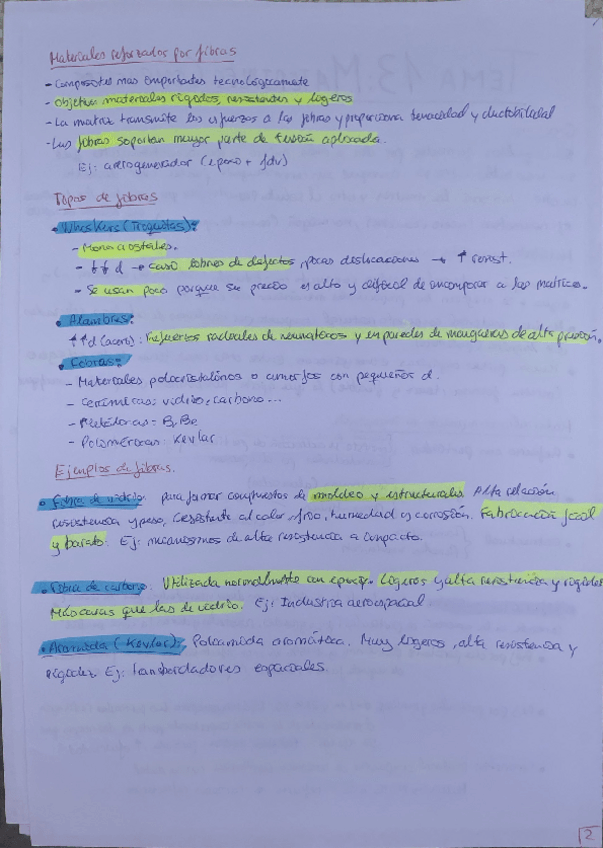 Materiales reforzados por fibras
- Composites mas importantes tecnológicamente
- Objetivo: materiales rígidos, resistentes y ligeros
- La matriz transmite los esfuerzos a las fibras y proporciona tenacidad y ductibilidad
- Las fibras soportan mayor parte de tensión aplicada.
Ej: aerogenerador (epoxi + fdv)
Tipos de fibras
• Whiskers (Triquetas):
- Monocristales.
- ↓↓ d → casi libres de defectos, pocas dislocaciones → ↑ resist.
- Se usan poco porque su precio es alto y difícil de incorporar a las matrices.
• Alambres:
↑↑d (acero): refuerzos radiales de neumáticos y en paredes de mangueras de alta presión.
• Fibras:
- Materiales policristalinos o amorfos con pequeños d.
- Cerámicas: vidrio, carbono...
- Metálicas: B, Be
- Poliméricas: Kevlar
Ejemplos de fibras.
• Fibra de vidrio: para formar compuestos de moldeo y estructurales. Alta relación
resistencia y peso, resistente al calor, frio, humedad y corrosión. Fabricación fácil
y barato. Ej: mecanismos de alta resistencia a impacto.
• Fibra de carbono: Utilizada normalmente con epoxy. Ligeros y alta resistencia y rigidez
Más caras que las de vidrio. Ej: Industria aeroespacial
• Aramida (-Kevlar): Poliamida aromática. Muy ligeros, alta resistencia y
rigidez Ej: transbordadores espaciales.
2